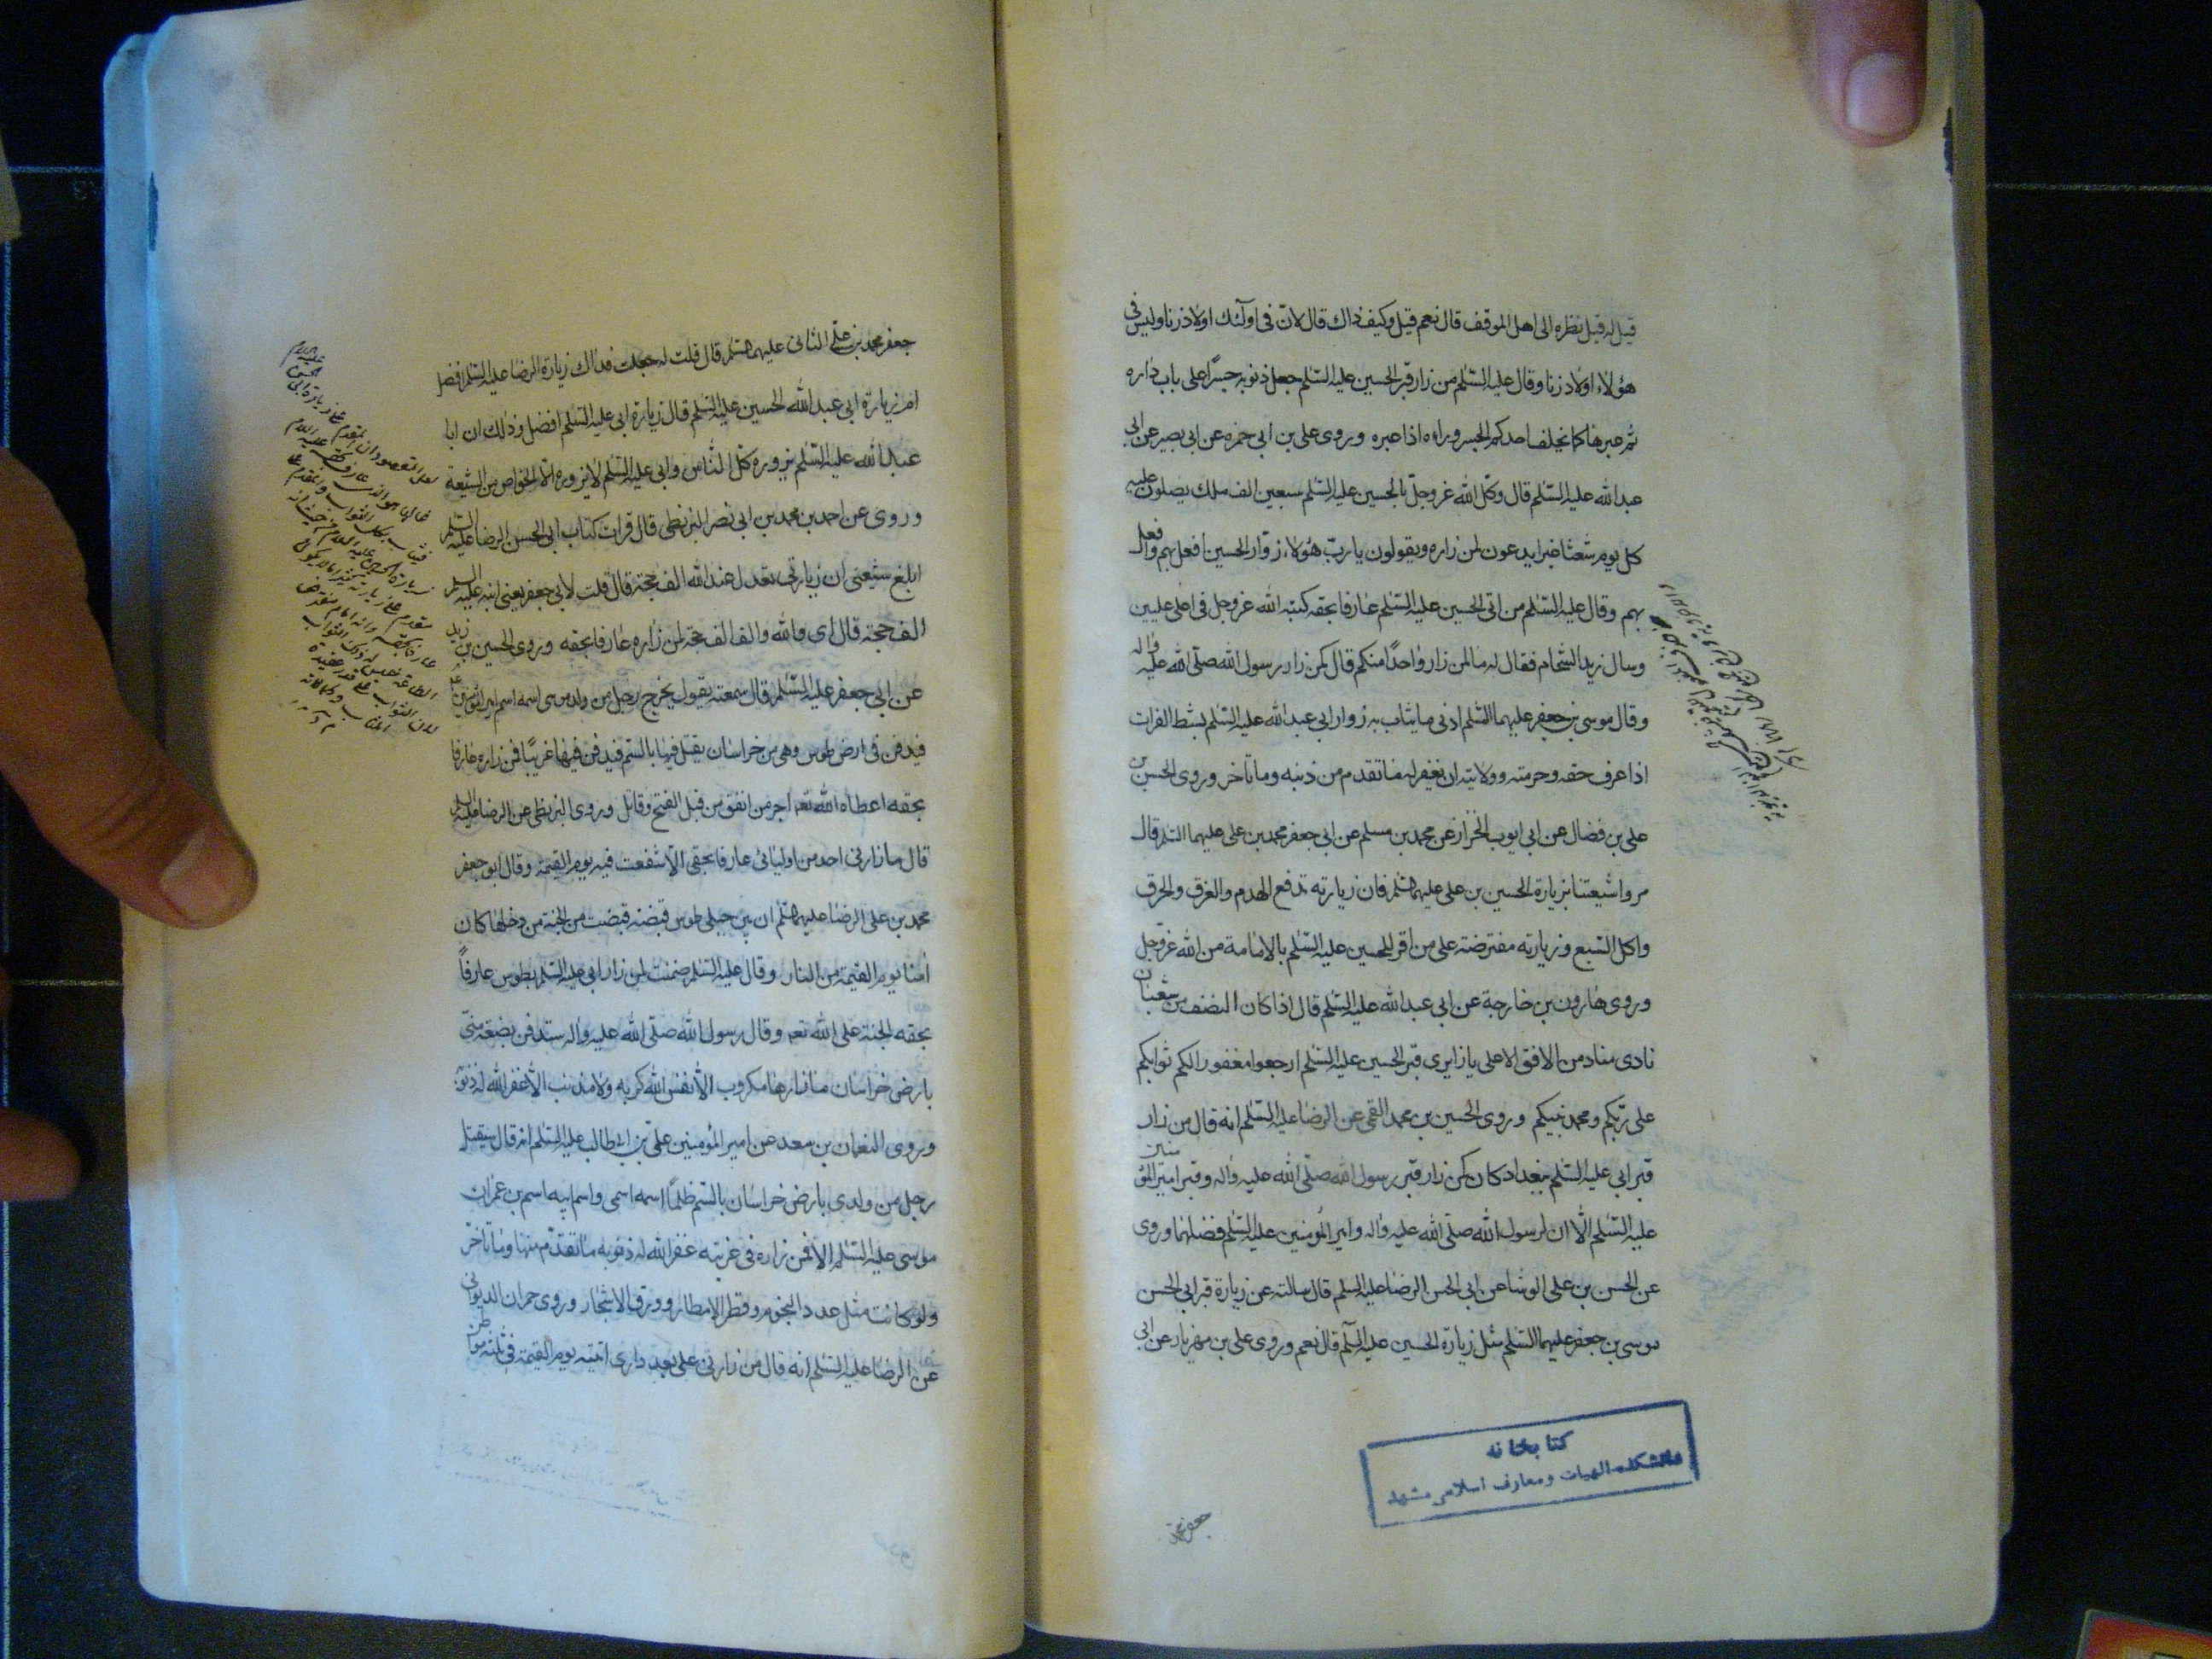 قيل له قبل نظره الى اهل الموقف قال نعم قيل وكيف ذاك قال لان في اولئك اولاد زنا وليس في
هؤلاء اولاد زنا وقال عليه السلم من زار قبر الحسين عليه السلم جعل ذنوبه جسرا على باب داره
ثم عبرها كما يخلف احدكم الجسر وراءه اذا عبره وروى على بن ابى حمزه عن ابى بصير عن ابى
عبد الله عليه السلم قال وكل الله عز وجل بالحسين عليه السلم سبعين الف ملك يصلون عليه
كل يوم شعثا غبرا يدعون لمن زاره ويقولون يا رب هؤلاء زوار الحسين افعل بهم وافعل
بهم وقال عليه السلم من اتى الحسين عليه السلم عارفا بحقه كتبه الله عز وجل في اعلى عليين
وسال زيد الشحام فقال له ما لمن زار واحدا منكم قال كمن زار رسول الله صلى الله عليه واله
وقال موسى بن جعفر عليهما السلم ادنى ما يثاب به زوار ابى عبد الله عليه السلم بشط الفرات
اذا عرف حقه وحرمته وولايته ان يغفر له ما تقدم من ذنبه وما تاخر وروى الحسن بن
على بن فضال عن ابى ايوب الخزاز عن محمد بن مسلم عن ابى جعفر محمد بن على عليهما السلم قال
مروا شيعتنا بزيارة الحسين بن على عليهما السلم فان زيارته تدفع الهدم والغرق والحرق
واكل السبع وزيارته مفترضة على من اقر للحسين عليه السلم بالامامة من الله عز وجل
وروى هارون بن خارجة عن ابى عبد الله عليه السلم قال اذا كان النصف من شعبان
نادى مناد من الافق الاعلى يا زايرى قبر الحسين عليه السلم ارجعوا مغفورا لكم ثوابكم
على ربكم ومحمد نبيكم وروى الحسين بن محمد القمى عن الرضا عليه السلم انه قال من زار
قبر ابى عليه السلم ببغداد كان كمن زار قبر رسول الله صلى الله عليه واله وقبر امير المؤمنين
عليه السلم الا ان لرسول الله صلى الله عليه واله وامير المؤمنين عليه السلم فضلهما وروى
عن الحسن بن على الوشا عن ابى الحسن الرضا عليه السلم قال سالته عن زيارة قبر ابى الحسن
موسى بن جعفر عليهما السلم مثل زيارة الحسين عليه السلم قال نعم وروى على بن مهزيار عن ابى
كتابخانه
دانشكده الهيات و معارف اسلامى مشهد
جعفر محمد بن على الثانى عليهما السلم قال قلت له جعلت فداك زيارة الرضا عليه السلم افضل
ام زيارة ابى عبد الله الحسين عليه السلم قال زيارة ابى عليه السلم افضل وذلك ان ابا
عبد الله عليه السلم يزوره كل الناس وابى عليه السلم لا يزوره الا الخواص من الشيعة
وروى عن احمد بن محمد بن ابى نصر البزنطى قال قرات كتاب ابى الحسن الرضا عليه السلم
ابلغ شيعتى ان زيارتى تعدل عند الله الف حجة قال قلت لابى جعفر يعنى ابنه عليه السلم
الف حجة قال اى والله والف الف حجة لمن زاره عارفا بحقه وروى الحسين بن زيد
عن ابى جعفر عليه السلم قال سمعته يقول يخرج رجل من ولد موسى اسمه اسم امير المؤمنين
فيدفن فى ارض طوس وهى من خراسان يقتل فيها بالسم فيدفن فيها غريبا فمن زاره عارفا
بحقه اعطاه الله تعه اجر من انفق من قبل الفتح وقاتل وروى البزنطى عن الرضا عليه السلم
قال ما زارنى احد من اوليائى عارفا بحقى الا شفعت فيه يوم القيمة وقال ابو جعفر
محمد بن على الرضا عليهما السلم ان بين جبلى طوس قبضة قبضت من الجنة من دخلها كان
امنا يوم القيمة من النار وقال عليه السلم ضمنت لمن زار ابى عليه السلم بطوس عارفا
بحقه الجنة على الله تعه وقال رسول الله صلى الله عليه واله ستدفن بضعة منى
بارض خراسان ما زارها مكروب الا نفس الله كربه ولا مذنب الا غفر الله له ذنوبه
وروى النعمان بن سعد عن امير المؤمنين على بن ابى طالب عليه السلم انه قال سيقتل
رجل من ولدى بارض خراسان بالسم ظلما اسمه اسمى واسم ابيه اسم بن عمران
موسى عليه السلم الا فمن زاره فى غربته غفر الله له ذنوبه ما تقدم منها وما تاخر
ولو كانت مثل عدد النجوم وقطر الامطار وورق الاشجار وروى حمران الديوانى
عن الرضا عليه السلم انه قال من زارنى على بعد دارى اتيته يوم القيمة فى ثلثة مواطن